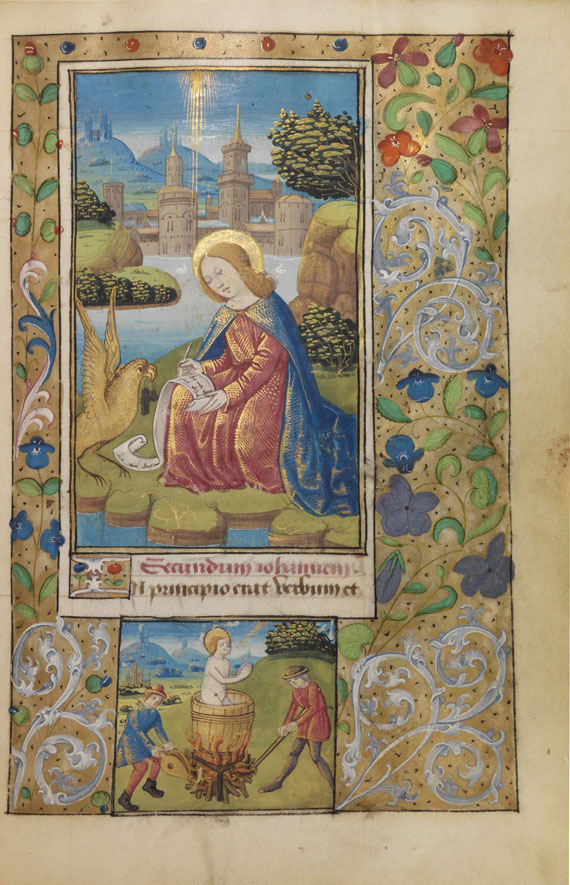 Secundum iohannem.
In principio erat verbum et